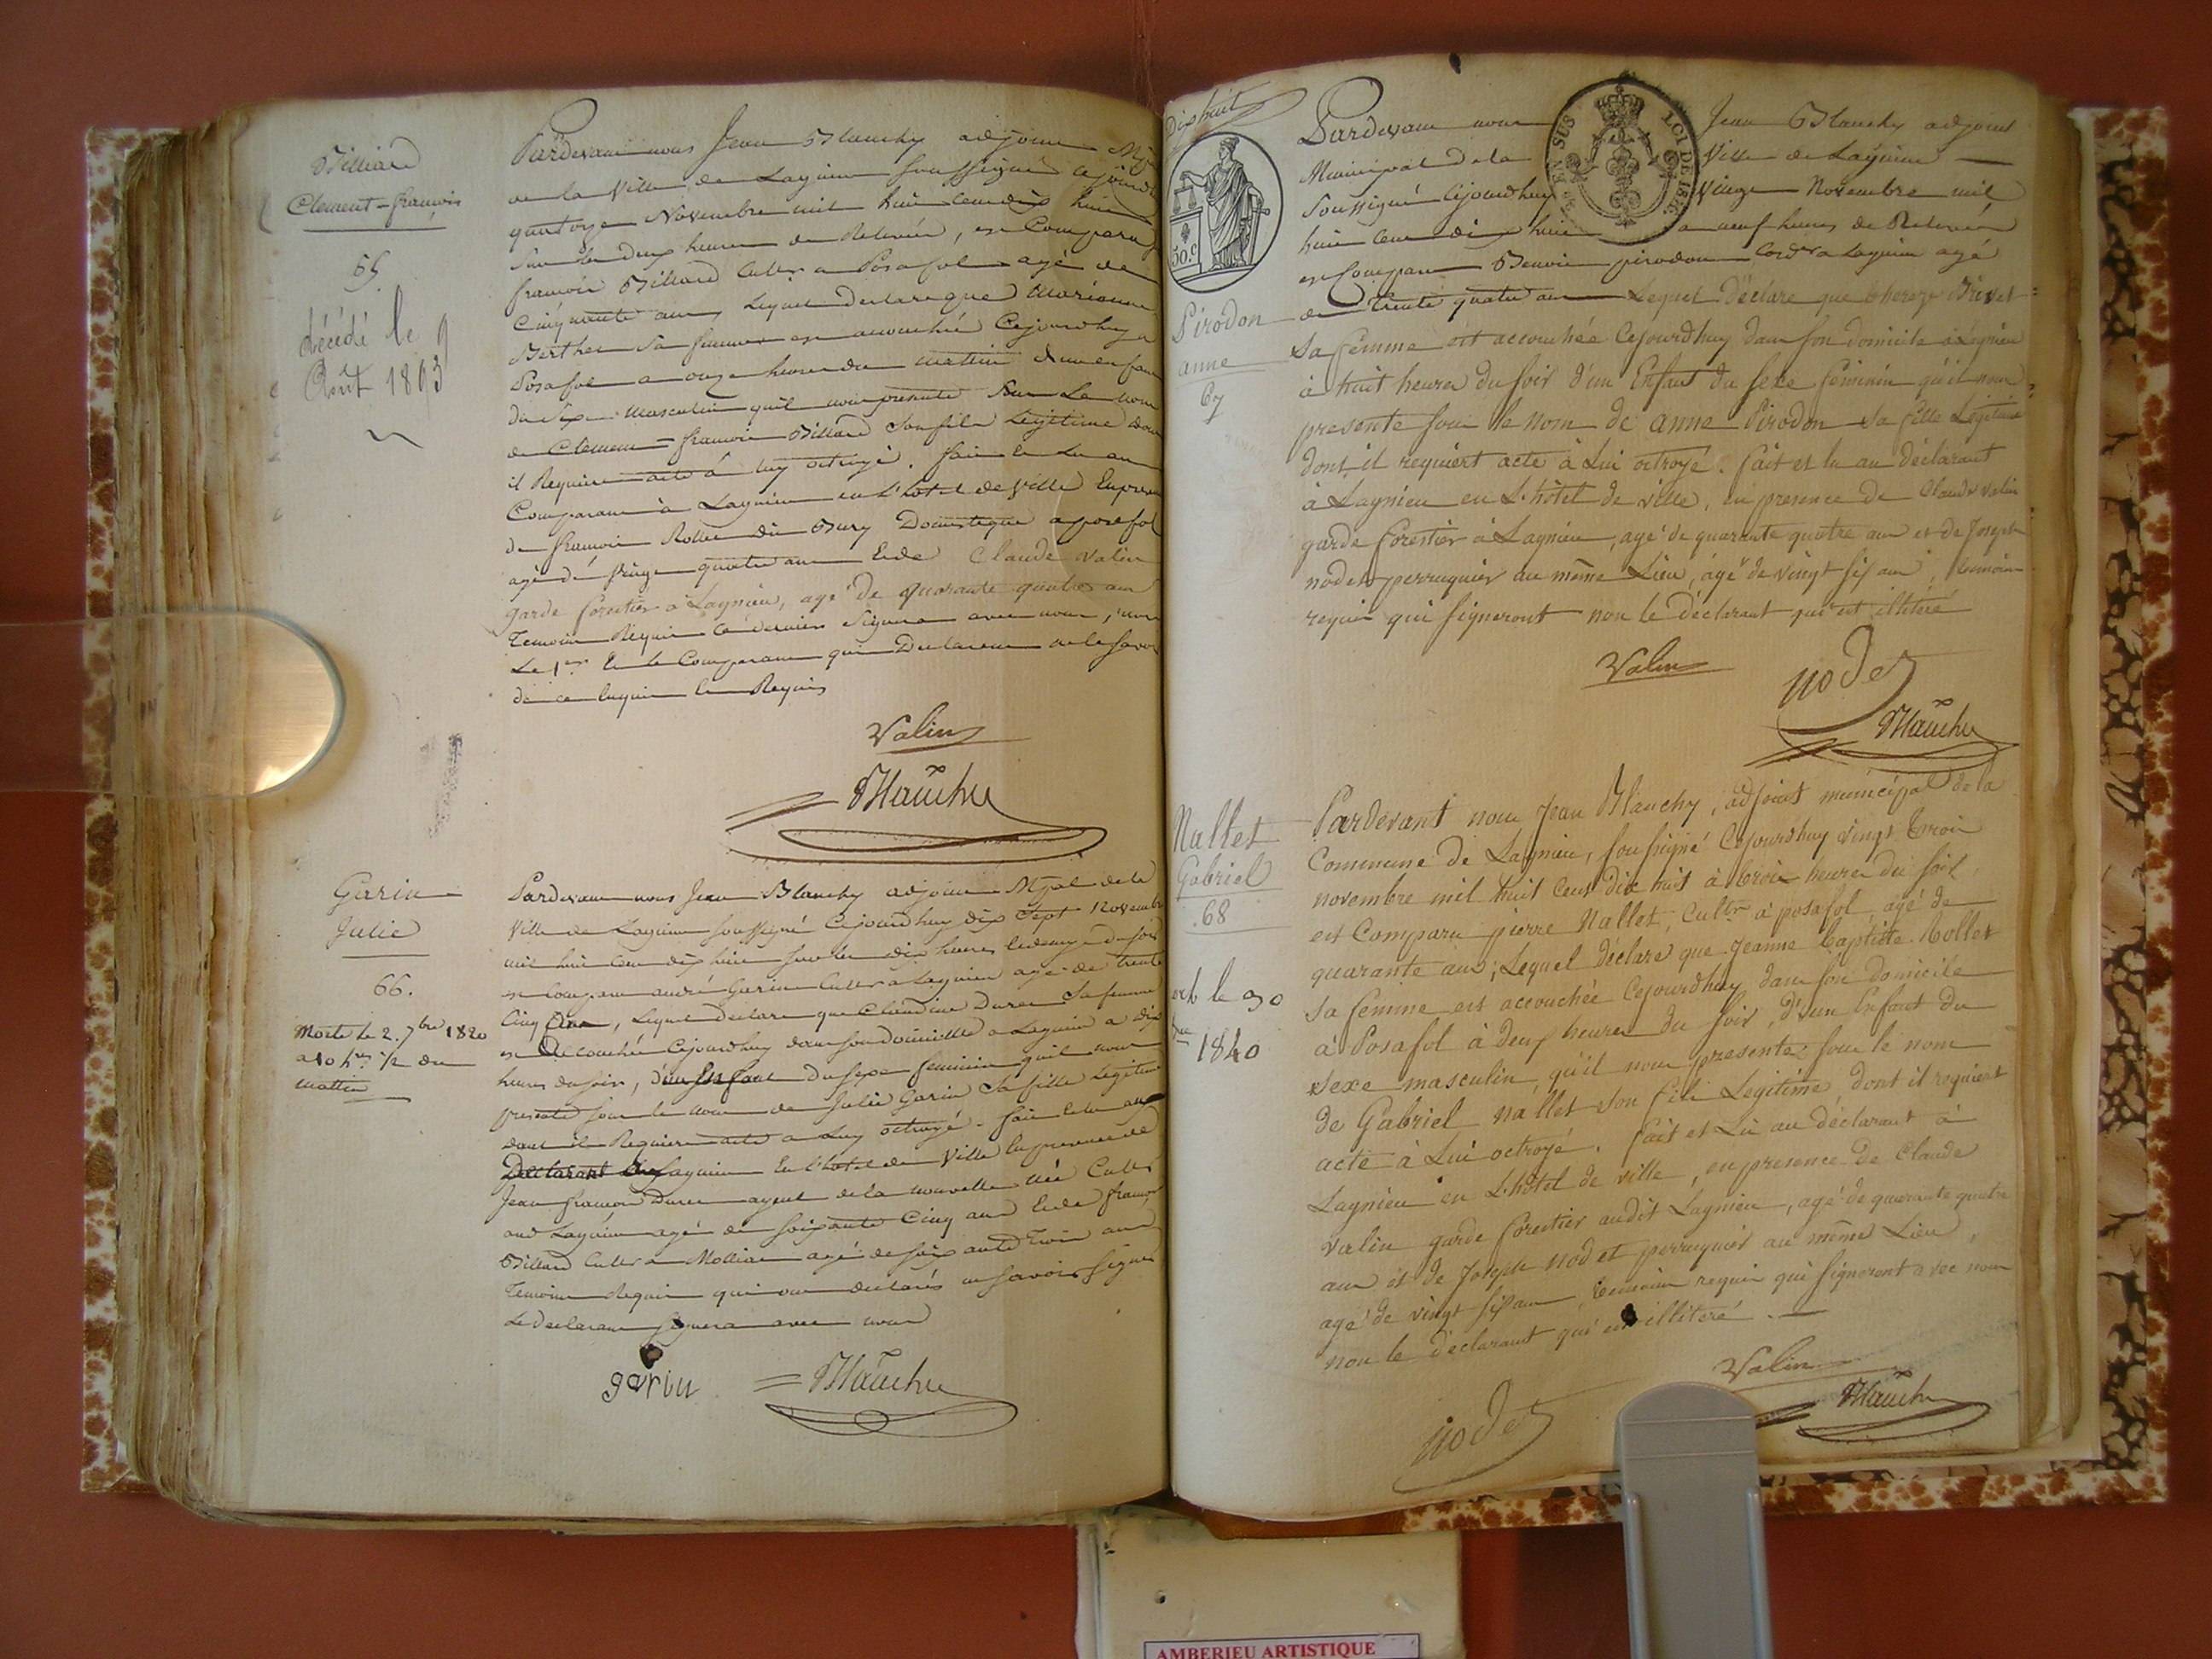 Billiard
Clement-francois
65.
décédé le 9
Août 1893
Pardevant nous Jean Blanchy adjoint Mpal
de la Ville de Lagnieu soussigné Cejourdhuy
quatorze Novembre mil huit cent dix huit
sur les deux heures de Relevée, est Comparu
francois Billiard Cultr a Posafol agé de
Cinquante ans Lequel declare que Marianne
Berthet Sa femme est accouchée Cejourdhuy a
Posafol a onze heures du matin d'un enfant
du Sexe masculin quil nous presente Sous Le nom
de Clement=francois Billiard Son fils Legitime dont
il Requiert acte à luy octroyé. fait et Lu au
Comparant à Lagnieu en L'hotel de Ville En presence
de francois Rollet dit Bury Domestique a posafol
agé de quatre ans Et de Claude Valin
garde forestier à Lagnieu, agé de quarante quatre ans
Temoins Requis Ce dernier Signera avec nous, non
Le 1er Et le Comparant qui Declarent ne le Savoir
de ce Enquis et Requis
Valin
Blanchy
Garin
Julie
66.
Morte le 2. 7bre 1820
a 10 hres 1/2 du
matin
Pardevant nous Jean Blanchy adjoint Mpal de la
Ville de Lagnieu soussigné Cejourdhuy dix Sept Novembre
mil huit cent dix huit sur les dix heures et demy du soir
est Comparu andré Garin Cultr a Lagnieu agé de trente
Cinq ans, Lequel declare que Claudine Duret Sa femme
est accouchée Cejourdhuy dans son Domicille a Lagnieu a dix
heures du soir, d'un Enfant du sexe feminin quil nous
presente sous le nom de Julie Garin Sa fille Legitime
dont il Requiert acte a Luy octroyé. fait et lu au
Declarant a Lagnieu En l'hotel de Ville En presence de
Jean francois Duret ayeul de la nouvelle née Cultr
aud Lagnieu agé de soixante Cinq ans Et de francois
Billiard Cultr a agé de soixante Trois ans
Temoins Requis qui ont declarés ne savoir signer
Le declarant signera avec nous
garin Blanchy
Dix huit
50.c
EN SUS LOI DE 1816
Pirodon
anne
67
Pardevant nous Jean Blanchy adjoint
Municipal de la Ville de Lagnieu
Soussigné Cejourdhuy Vingt Novembre mil
huit cent dix huit a neuf heures de Relevée
est Comparu Benoit pirodon Cordr a Lagnieu agé
de Trente quatre ans Lequel Déclare que therese Brivet
Sa femme est accouchée Cejourdhuy dans son domicile à Lagnieu
à huit heures du soir d'un Enfant du sexe féminin qu'il nous
presente sous le nom de anne Pirodon sa fille Légitime
dont il requiert acte à Lui octroyé. fait et lu au déclarant
à Lagnieu en L'hôtel de ville, en presence de Claude Valin
garde forestier à Lagnieu, agé de quarante quatre ans et de Joseph
nodet perruquier au même Lieu, âgé de vingt six ans, temoins
requis qui signeront non le déclarant qui est illitéré
Valin
nodet
Blanchy
Nallet
Gabriel
68
le 30
1840
Pardevant nous Jean Blanchy, adjoint municipal de la
Commune de Lagnieu, soussigné Cejourdhuy vingt trois
novembre mil huit Cent dix huit à trois heures du soir,
est Comparu pierre Nallet, Cultr à posafol, agé de
quarante ans; Lequel déclare que Jeanne baptiste Rollet
sa femme est accouchée Cejourdhuy dans son domicile
à Posafol à deux heures du soir, d'un Enfant du
sexe masculin, qu'il nous presente sous le nom
de Gabriel nallet son fils Legitime, dont il requiert
acte à Lui octroyé. fait et Lu au déclarant à
Lagnieu en L'hôtel de ville, en presence de Claude
valin garde forestier audit Lagnieu, agé de quarante quatre
ans et de Joseph nodet perruquier au même Lieu,
agé de vingt six ans, temoins requis qui signeront avec nous
non le déclarant qui est illitéré.
Valin
Blanchy
nodet
AMBERIEU ARTISTIQUE